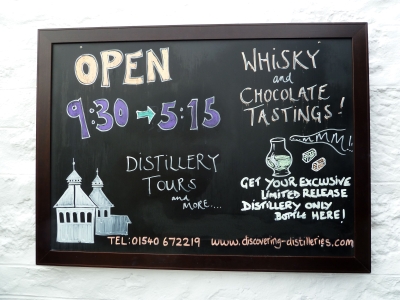 OPEN
9:30 → 5:15
WHISKY
and
CHOCOLATE
TASTINGS!
DISTILLERY
TOURS
and
MORE....
mmMM!
GET YOUR EXCLUSIVE
LIMITED RELEASE
DISTILLERY ONLY
BOTTLE HERE!
TEL: 01540 672219 www.discovering-distilleries.com